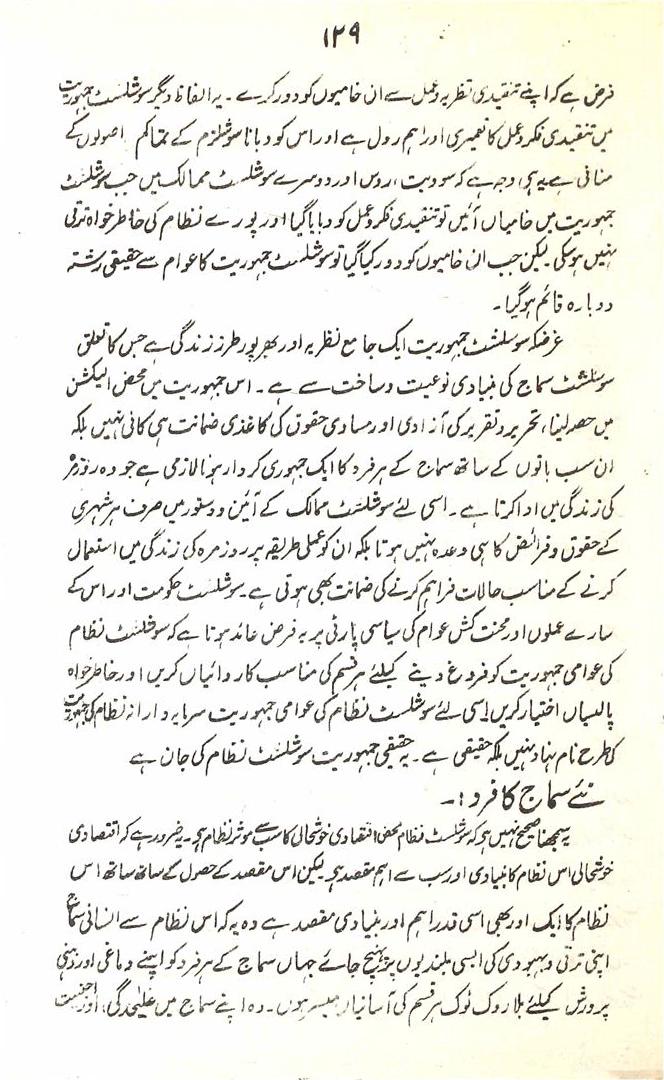 ۱۲۹
فرض ہے کہ اپنے تنقیدی نظریہ و عمل سے ان خامیوں کو دور کرے ۔ بہ الفاظ دیگر سوشلسٹ جمہوریت
میں تنقیدی فکر و عمل کا تعمیری اور اہم رول ہے اور اس کو دبانا سوشلزم کے تمام اصولوں کے
منافی ہے یہی وجہ ہے کہ سوویت، روس اور دوسرے سوشلسٹ ممالک میں جب سوشلسٹ
جمہوریت میں خامیاں آئیں تو تنقیدی فکر و عمل کو دبایا گیا اور پورے نظام کی خاطر خواہ ترقی
نہیں ہوسکی لیکن جب ان خامیوں کو دور کیا گیا تو سوشلسٹ جمہوریت کا عوام سے حقیقی رشتہ
دوبارہ قائم ہوگیا ۔
غرضکہ سوسلسٹ جمہوریت ایک جامع نظریہ اور بھرپور طرز زندگی ہے جس کا تعلق
سوشلسٹ سماج کی بنیادی نوعیت و ساخت سے ہے ۔ اس جمہوریت میں محض الیکشن
میں حصہ لینا، تحریر و تقریر کی آزادی اور مساوی حقوق کی کاغذی ضمانت ہی کافی نہیں بلکہ
ان سب باتوں کے ساتھ سماج کے ہر فرد کا ایک جمہوری کردار ہونا لازمی ہے جو وہ روزمرہ
کی زندگی میں ادا کرتا ہے ۔ اسی لئے سوشلسٹ ممالک کے آئین و دستور میں صرف ہر شہری
کے حقوق و فرائض کا ہی وعدہ نہیں ہوتا بلکہ ان کو عملی طریقہ پر روزمرہ کی زندگی میں استعمال
کرنے کے مناسب حالات فراہم کرنے کی ضمانت بھی ہوتی ہے ۔ سوشلسٹ حکومت اور اس کے
سارے عملوں اور محنت کش عوام کی سیاسی پارٹی پر یہ فرض عائد ہوتا ہے کہ سوشلسٹ نظام
کی عوامی جمہوریت کو فروغ دینے کیلئے ہر قسم کی مناسب کاروائیاں کریں اور خاطر خواہ
پالسیاں اختیار کریں اسی لئے سوشلسٹ نظام کی عوامی جمہوریت سرمایہ دارانہ نظام کی جمہوریت
کی طرح نام نہاد نہیں بلکہ حقیقی ہے ۔ یہ حقیقی جمہوریت سوشلسٹ نظام کی جان ہے
نئے سماج کا فرد :۔
یہ سمجھنا صحیح نہیں ہے کہ سوشلسٹ نظام محض اقتصادی خوشحالی کا سب سے موثر نظام ہے ۔ یہ ضرور ہے کہ اقتصادی
خوشحالی اس نظام کا بنیادی اور سب سے اہم مقصد ہے لیکن اس مقصد کے حصول کے ساتھ ساتھ اس
نظام کا ایک اور بھی اسی قدر اہم اور بنیادی مقصد ہے وہ یہ کہ اس نظام سے انسانی سماج
اپنی ترقی و بہبودی کی ایسی بلندیوں پر پہنچ جائے جہاں سماج کے ہر فرد کو اپنے دماغی اور ذہنی
پرورش کیلئے بلا روک ٹوک ہر قسم کی آسانیاں میسر ہوں ۔ وہ اپنے سماج میں علیٰحدگی، اور اجنبیت